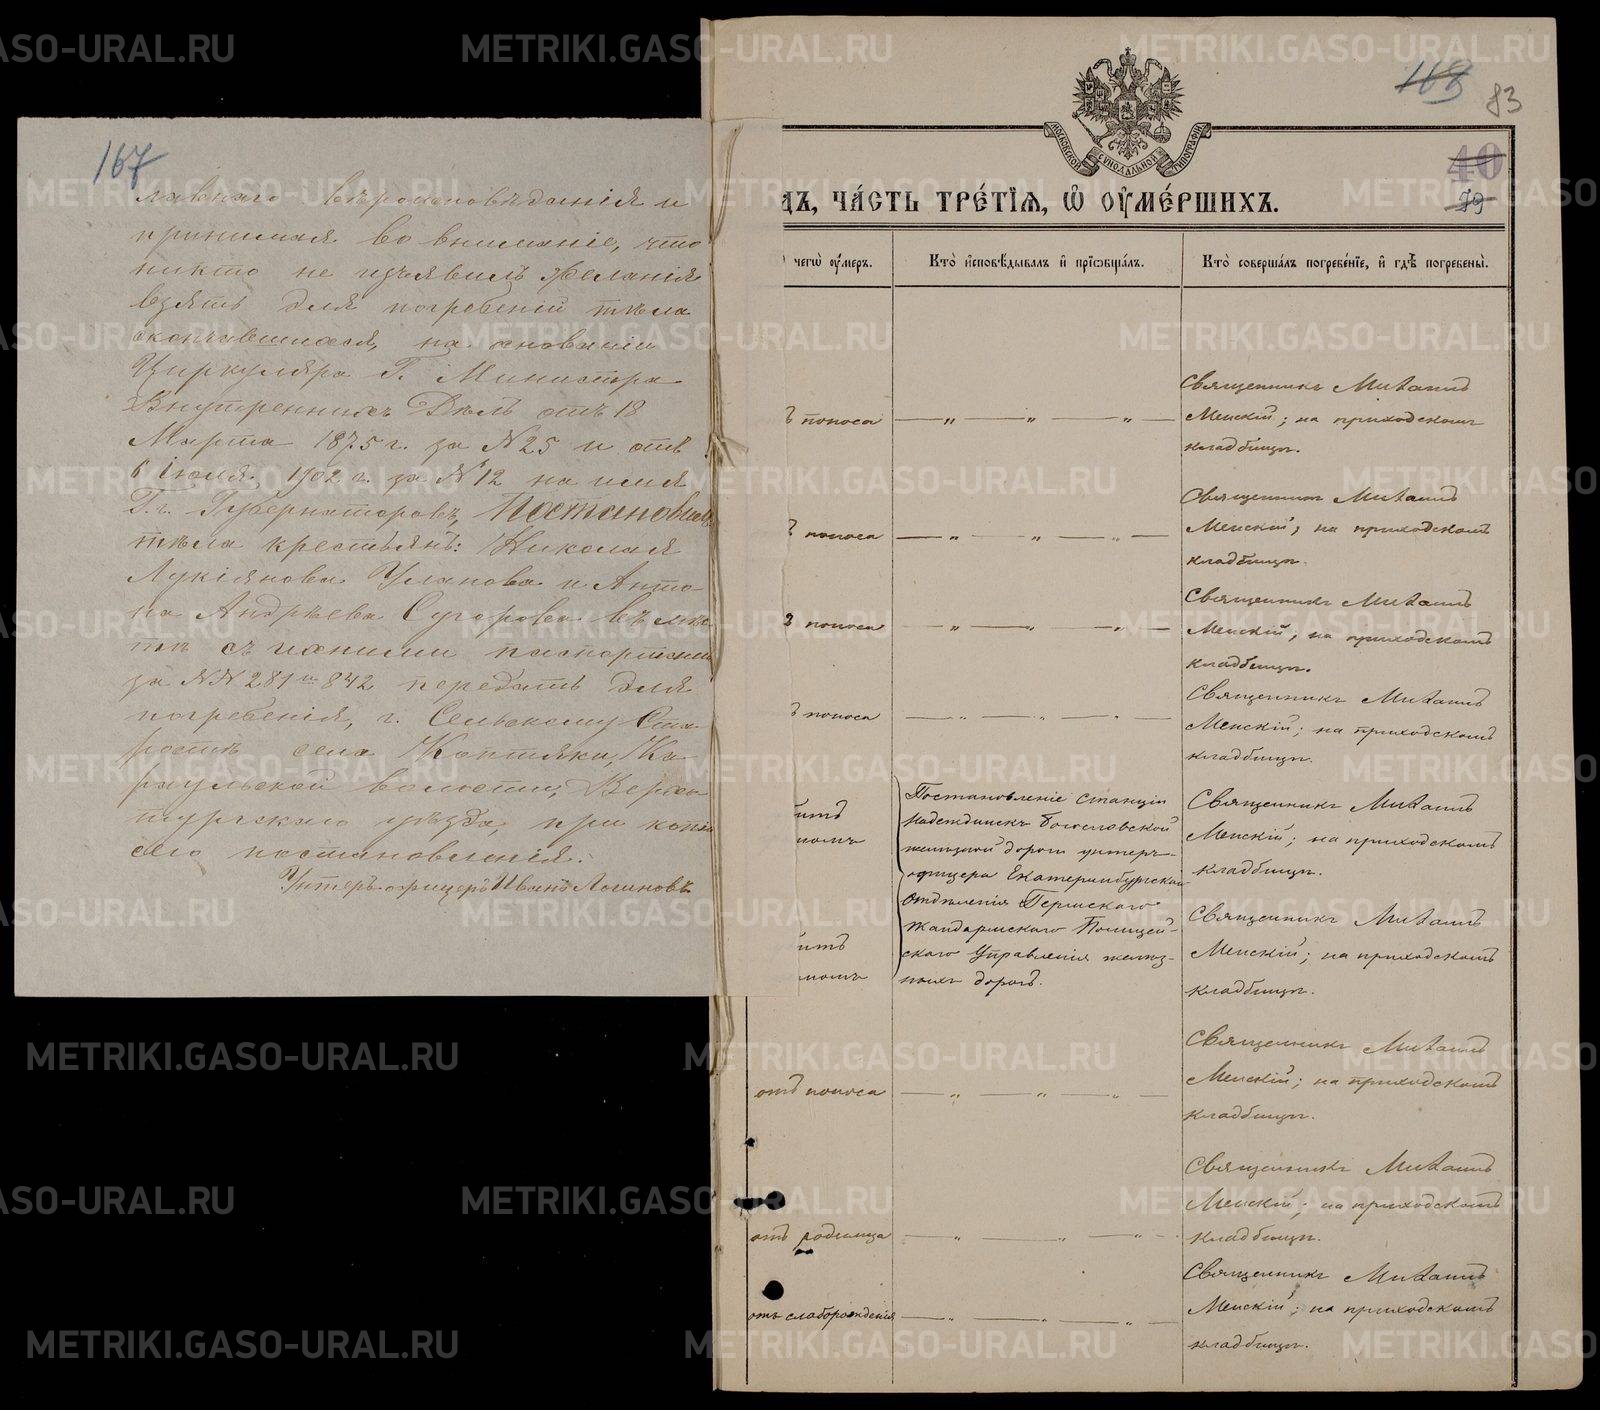 167
лавнаго вѣроисповѣданія и
принимая во вниманіе, что
никто не изъявилъ желанія
взять для погребеній тѣла
скончавшихся, на основаніи
Циркуляра Г. Министра
Внутреннихъ Дѣлъ отъ 18
Марта 1875 г. за N 25 и отъ
6 Іюля 1902 г. за N 12 на имя
Г.г. Губернаторовъ, Постановилъ
тѣла крестьянъ: Николая
Лукіянова Уланова и Анто-
на Андрѣева Сугорова вмѣс
тѣ съ ихними паспортами
за NN 281 и 842 передать для
погребенія, г. Сельскому Ста
ростѣ села Коптяки, Ка
раульской волости, Верхо
турскаго уѣзда, при копіи
сего постановленія.
Унтеръ-офицеръ Иванъ Логиновъ
168
83
40
79
МОСКОВСКОЙ СѴНОДАЛЬНОЙ ТИПОГРАФІИ
ДЪ, ЧА́СТЬ ТРЕ́ТІѦ, Ѡ ОУМЕ́РШИХЪ.
чегѡ оумеръ.
Кто и҆сповѣ́дывалъ и҆ прїѡбща́лъ.
Кто соверша́лъ погребе́нїе, и҆ гдѣ̀ погребены̀.
ъ поноса
— „ — „ — „ —
Священникъ Михаилъ
Менскій; на приходскомъ
кладбищѣ.
ъ поноса
— „ — „ — „ —
Священникъ Михаилъ
Менскій; на приходскомъ
кладбищѣ.
ъ поноса
— „ — „ — „ —
Священникъ Михаилъ
Менскій; на приходскомъ
кладбищѣ.
ъ поноса
— „ — „ — „ —
Священникъ Михаилъ
Менскій; на приходскомъ
кладбищѣ.
Постановленіе станціи
Надеждинскъ Богословской
желѣзной дороги унтеръ-
офицера Екатеринбургскаго
отдѣленія Пермскаго
Жандармскаго Полицей-
скаго Управленія желѣз-
ныхъ дорогъ.
Священникъ Михаилъ
Менскій; на приходскомъ
кладбищѣ.
Священникъ Михаилъ
Менскій; на приходскомъ
кладбищѣ.
отъ поноса
— „ — „ — „ —
Священникъ Михаилъ
Менскій; на приходскомъ
кладбищѣ.
отъ родимца
— „ — „ — „ —
Священникъ Михаилъ
Менскій; на приходскомъ
кладбищѣ.
отъ слаборожденія
— „ — „ — „ —
Священникъ Михаилъ
Менскій; на приходскомъ
кладбищѣ.
METRIKI.GASO-URAL.RU